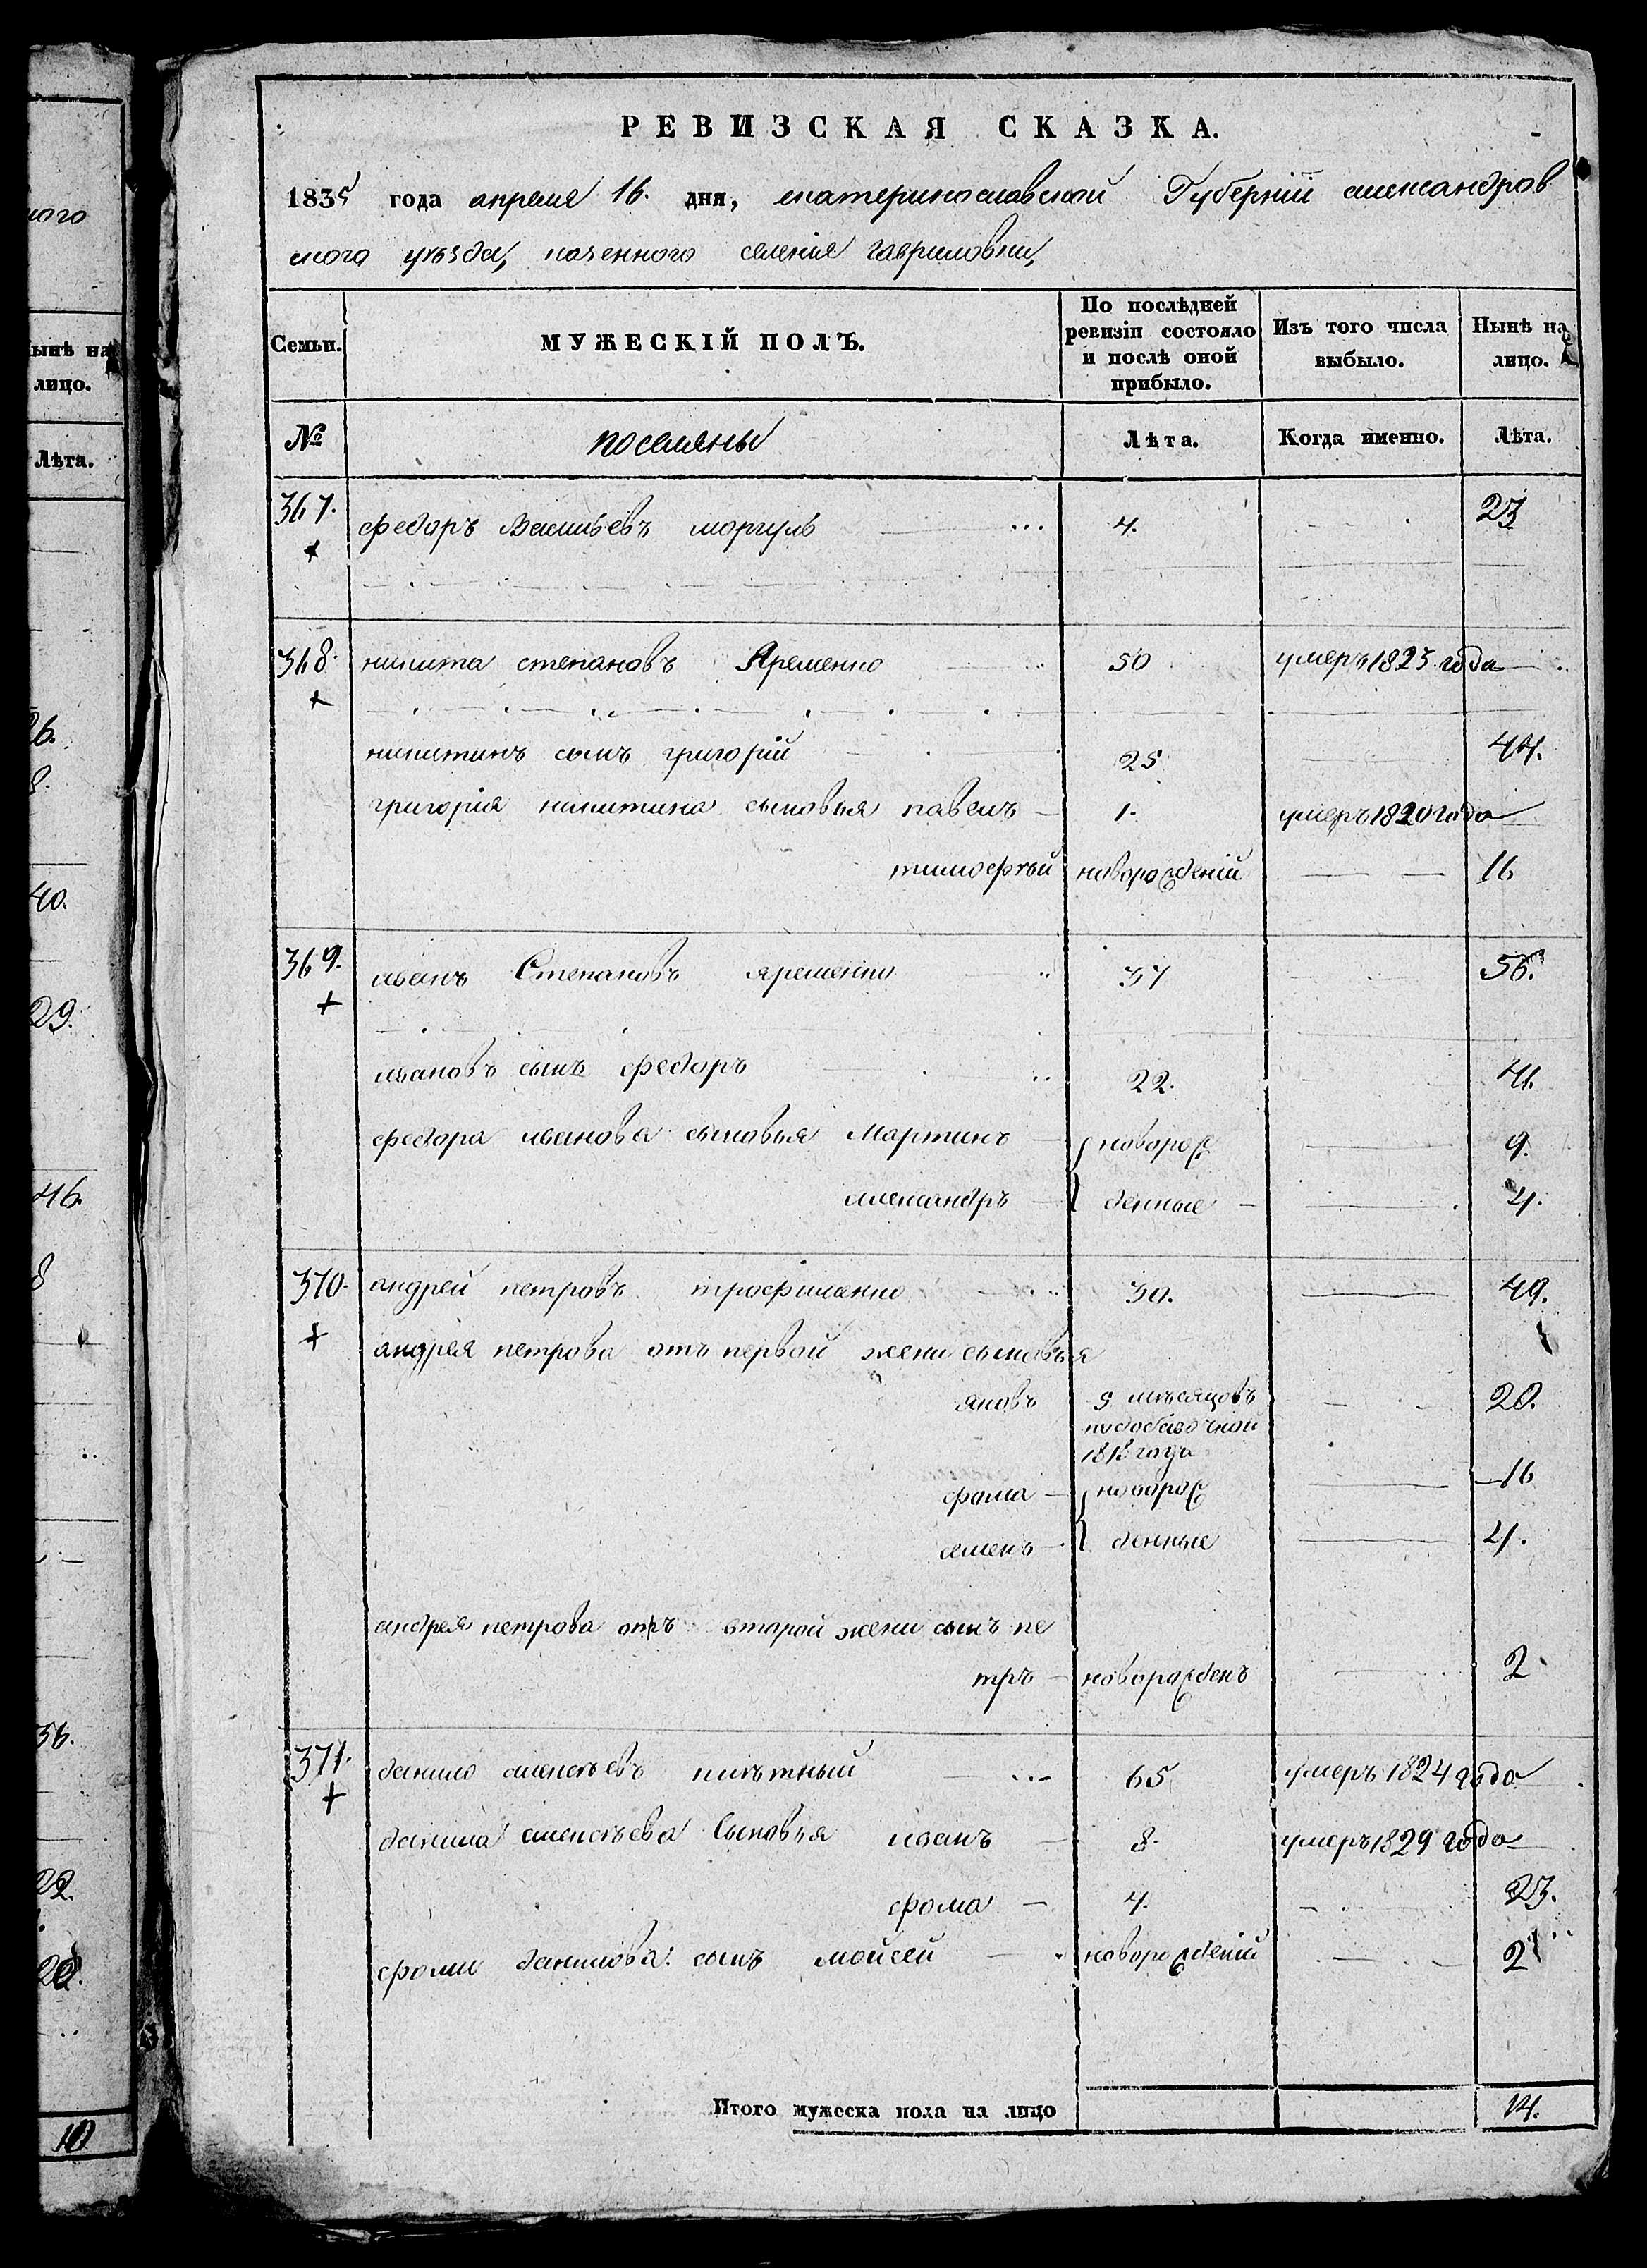 ного
ынѣ на
лицо.
Лѣта.
26.
8.
40.
29.
46.
8
36.
22.
20.
10
РЕВИЗСКАЯ СКАЗКА.
1835 года апреля 16. дня, екатеринославской Губернiи александров
ского уѣзда, казенного селенiя гавриловки,
Семьи.
МУЖЕСКІЙ ПОЛЪ.
По послѣдней
ревизіи состояло
и послѣ оной
прибыло.
Изъ того числа
выбыло.
Нынѣ на
лицо.
№
поселяны
Лѣта.
Когда именно.
Лѣта.
367. федоръ Васильевъ моргуль 4. 23
368. никита степановъ Яременко 50 умеръ 1823 года
никитинъ сынъ григорiй 25 44.
григорiя никитина сыновья павелъ 1. умеръ 1820 года
тимофѣй новорожденiй 16
369. иванъ Степановъ яременко 37 56.
ивановъ сынъ федоръ 22. 41.
федора иванова сыновья Мартинъ новорож 9.
александръ денные 4.
370. андрей петровъ трофименко 30. 49.
андрея петрова отъ первой жени сыновья
яковъ 5 мѣсяцовъ 20.
подобавочной
1818 года
фома новорож 16
семенъ денные 4.
андрея петрова отъ второй жени сынъ пе
тръ новорожденъ 2
371. данило алексѣевъ 65 умеръ 1824 года
данила алексѣева Сыновья иванъ 8. умеръ 1829 года
фома 4. 23.
фоми данилова сынъ мойсей новорожденiй 2
Итого мужеска пола на лицо 14.